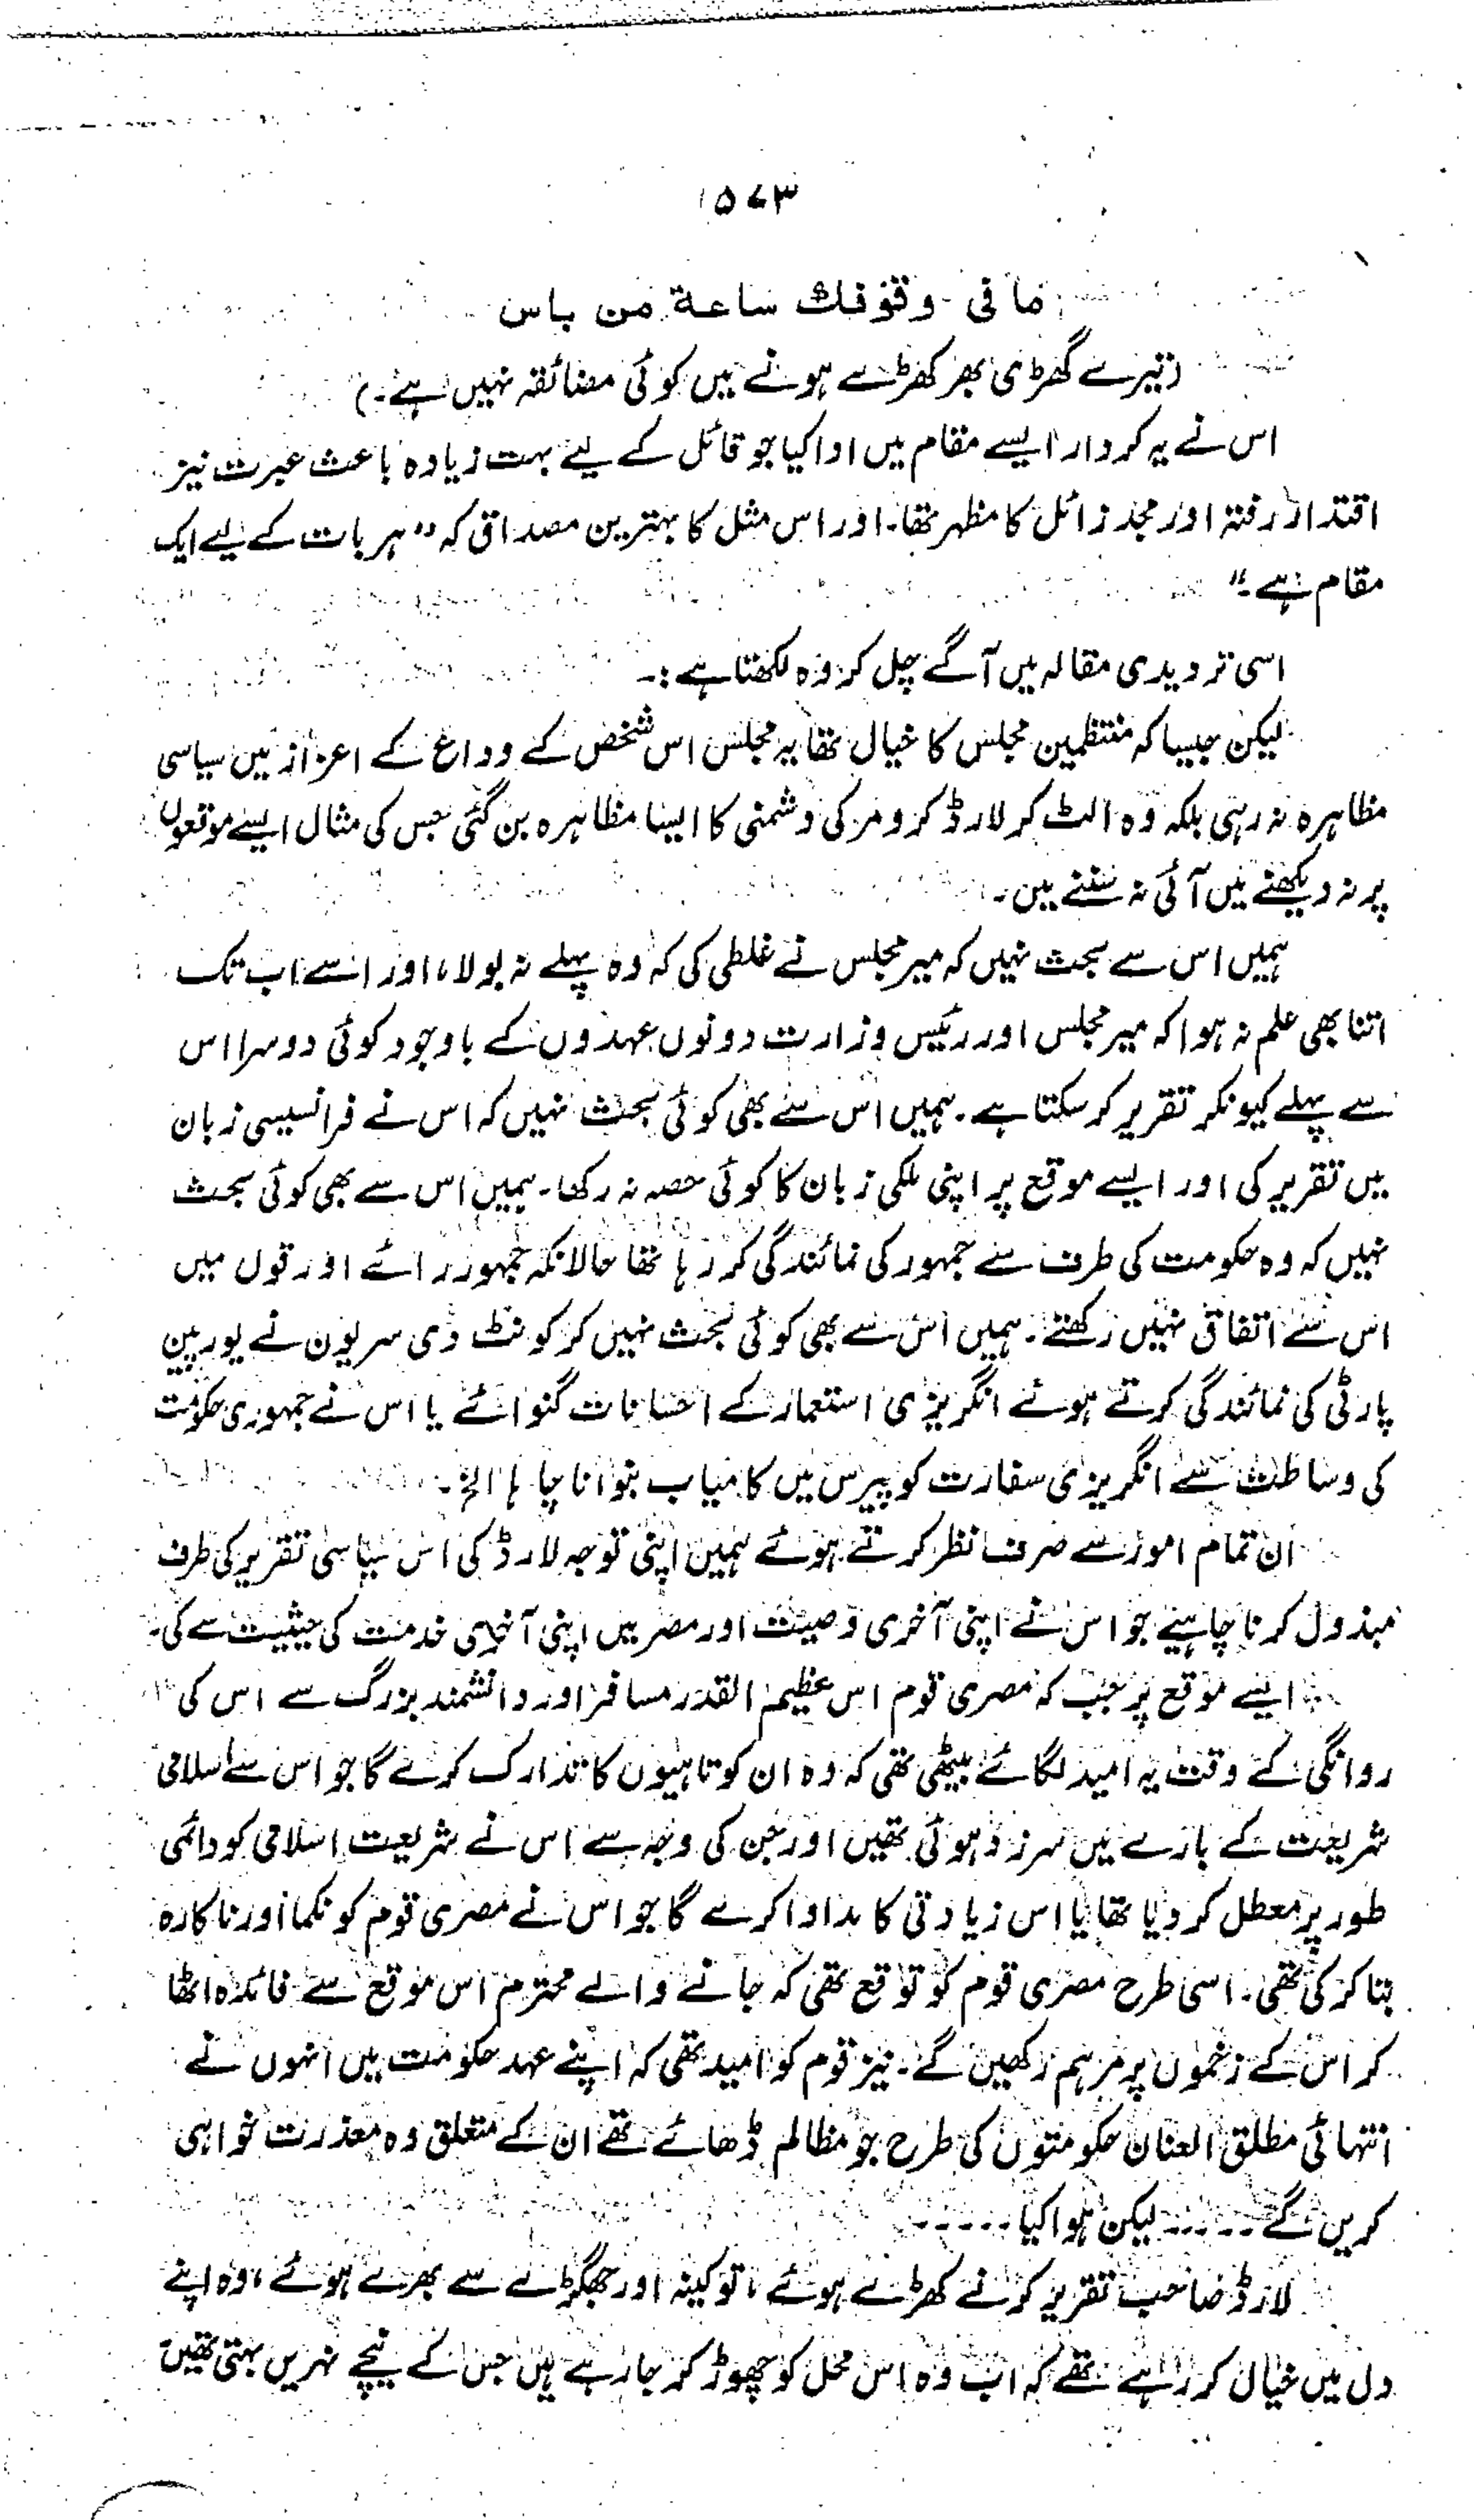 ۱۵۷۳
ما فی وقوفك ساعة من باس
(تیرے گھڑی بھر کھڑے ہونے میں کوئی مضائقہ نہیں ہے۔)
اس نے یہ کردار ایسے مقام میں ادا کیا جو قائل کے لیے بہت زیادہ باعث عبرت نیز
اقتدار رفتہ اور مجد زائل کا مظہر تھا۔ اور اس مثل کا بہترین مصداق کہ "ہر بات کے لیے ایک
مقام ہے۔"
اسی تردیدی مقالہ میں آگے چل کر وہ لکھتا ہے:۔
لیکن جیسا کہ منتظمین مجلس کا خیال تھا یہ مجلس اس شخص کے وداع کے اعزاز میں سیاسی
مظاہرہ نہ رہی بلکہ وہ الٹ کر لارڈ کرومر کی دشمنی کا ایسا مظاہرہ بن گئی جس کی مثال ایسے موقعوں
پر نہ دیکھنے میں آئی نہ سننے میں۔
ہمیں اس سے بحث نہیں کہ میر مجلس نے غلطی کی کہ وہ پہلے نہ بولا، اور اسے اب تک
اتنا بھی علم نہ ہوا کہ میر مجلس اور رئیس وزارت دونوں عہدوں کے باوجود کوئی دوسرا اس
سے پہلے کیونکر تقریر کر سکتا ہے۔ ہمیں اس سے بھی کوئی بحث نہیں کہ اس نے فرانسیسی زبان
میں تقریر کی اور ایسے موقع پر اپنی ملکی زبان کا کوئی حصہ نہ رکھا۔ ہمیں اس سے بھی کوئی بحث
نہیں کہ وہ حکومت کی طرف سے جمہور کی نمائندگی کر رہا تھا حالانکہ جمہور رائے اور قول میں
اس سے اتفاق نہیں رکھتے۔ ہمیں اس سے بھی کوئی بحث نہیں کہ کونٹ دی سریون نے یورپین
پارٹی کی نمائندگی کرتے ہوئے انگریزی استعمار کے احسانات گنوائے یا اس نے جمہوری حکومت
کی وساطت سے انگریزی سفارت کو پیرس میں کامیاب بنوانا چاہا الخ۔
ان تمام امور سے صرف نظر کرتے ہوئے ہمیں اپنی توجہ لارڈ کی اس سیاسی تقریر کی طرف
مبذول کرنا چاہیئے جو اس نے اپنی آخری وصیت اور مصر میں اپنی آخری خدمت کی حیثیت سے کی۔
ایسے موقع پر جب کہ مصری قوم اس عظیم القدر مسافر اور دانشمند بزرگ سے اس کی
روانگی کے وقت یہ امید لگائے بیٹھی تھی کہ وہ ان کوتاہیوں کا تدارک کرے گا جو اس سے اسلامی
شریعت کے بارے میں سرزد ہوئی تھیں اور جن کی وجہ سے اس نے شریعت اسلامی کو دائمی
طور پر معطل کر دیا تھا یا اس زیادتی کا مداوا کرے گا جو اس نے مصری قوم کو نکما اور ناکارہ
بتا کر کی تھی۔ اسی طرح مصری قوم کو توقع تھی کہ جانے والے محترم اس موقع سے فائدہ اٹھا
کر اس کے زخموں پر مرہم رکھیں گے۔ نیز قوم کو امید تھی کہ اپنے عہد حکومت میں انہوں نے
انتہائی مطلق العنان حکومتوں کی طرح جو مظالم ڈھائے تھے ان کے متعلق وہ معذرت خواہی
کریں گے ۔۔۔۔۔ لیکن ہوا کیا ۔۔۔۔۔
لارڈ صاحب تقریر کرنے کھڑے ہوئے، تو کینہ اور جھگڑے سے بھرے ہوئے، وہ اپنے
دل میں خیال کر رہے تھے کہ اب وہ اس محل کو چھوڑ کر جا رہے ہیں جس کے نیچے نہریں بہتی تھیں